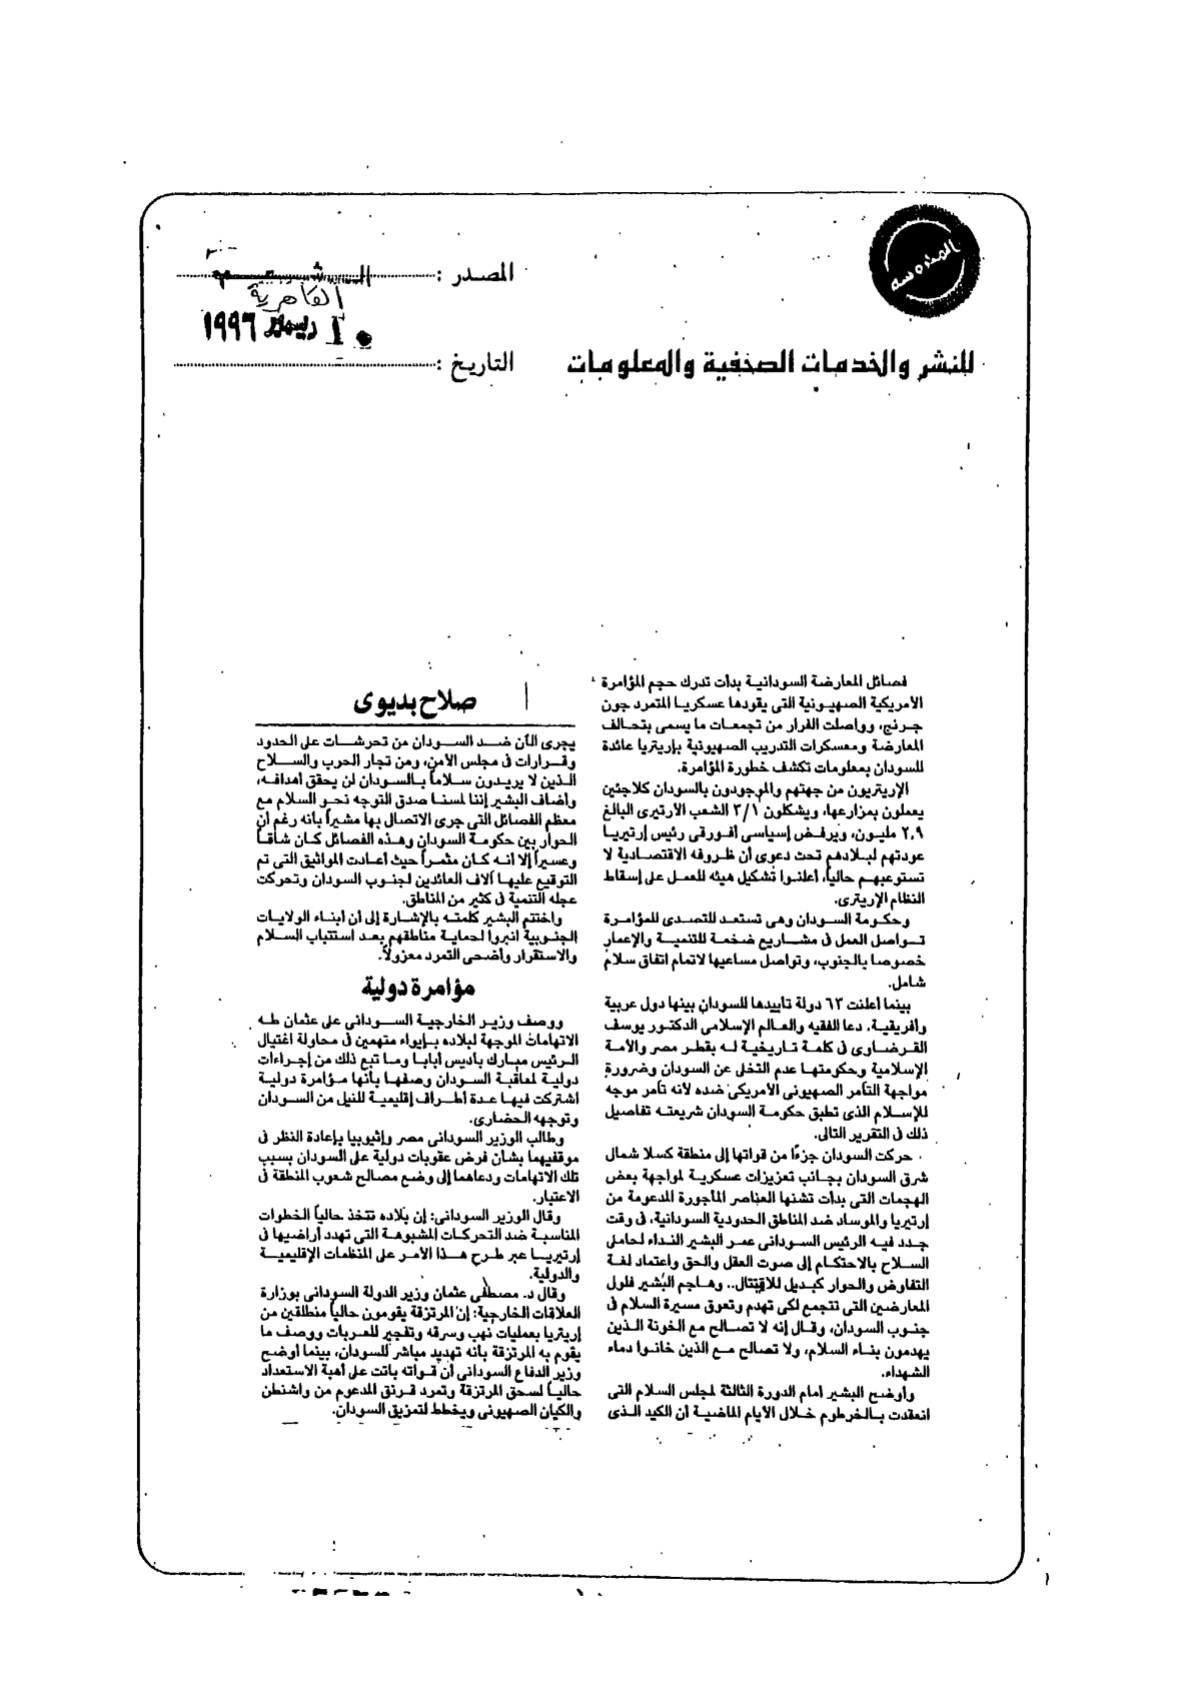 المحروسة
المصدر : الشعب
القاهرية
١٠ ديسمبر ١٩٩٦
للنشر والخدمات الصحفية والمعلومات
التاريخ :
فصائل المعارضة السودانية بدأت تدرك حجم المؤامرة
الأمريكية الصهيونية التى يقودها عسكريا المتمرد جون
جرنج، وواصلت الفرار من تجمعات ما يسمى بتحالف
المعارضة ومعسكرات التدريب الصهيونية بإريتريا عائدة
للسودان بمعلومات تكشف خطورة المؤامرة.
الإريتريون من جهتهم والموجودون بالسودان كلاجئين
يعملون بمزارعها، ويشكلون ٣/١ الشعب الأرتيرى البالغ
٢,٩ مليون، ويرفض إسياسى أفورقى رئيس إرتيريا
عودتهم لبلادهم تحت دعوى أن ظروفه الاقتصادية لا
تستوعبهم حالياً، أعلنوا تشكيل هيئه للعمل على إسقاط
النظام الإريترى.
وحكومة السودان وهى تستعد للتصدى للمؤامرة
تواصل العمل فى مشاريع ضخمة للتنمية والإعمار
خصوصا بالجنوب، وتواصل مساعيها لاتمام اتفاق سلام
شامل.
بينما أعلنت ٦٣ دولة تأييدها للسودان بينها دول عربية
وأفريقية، دعا الفقيه والعالم الإسلامى الدكتور يوسف
القرضاوى فى كلمة تاريخية له بقطر مصر والأمة
الإسلامية وحكومتها عدم التخلى عن السودان وضرورة
مواجهة التآمر الصهيونى الأمريكى ضده لأنه تآمر موجه
للإسلام الذى تطبق حكومة السودان شريعته تفاصيل
ذلك فى التقرير التالى.
حركت السودان جزءًا من قواتها إلى منطقة كسلا شمال
شرق السودان بجانب تعزيزات عسكرية لمواجهة بعض
الهجمات التى بدأت تشنها العناصر المأجورة المدعومة من
إرتيريا والموساد ضد المناطق الحدودية السودانية، فى وقت
جدد فيه الرئيس السودانى عمر البشير النداء لحاملى
السلاح بالاحتكام إلى صوت العقل والحق واعتماد لغة
التفاوض والحوار كبديل للاقتتال.. وهاجم البشير فلول
المعارضين التى تتجمع لكى تهدم وتعوق مسيرة السلام فى
جنوب السودان، وقال إنه لا تصالح مع الخونة الذين
يهدمون بناء السلام، ولا تصالح مع الذين خانوا دماء
الشهداء.
وأوضح البشير أمام الدورة الثالثة لمجلس السلام التى
انعقدت بالخرطوم خلال الأيام الماضية أن الكيد الذى
صلاح بديوى
يجرى الآن ضد السودان من تحرشات على الحدود
وقرارات فى مجلس الأمن، ومن تجار الحرب والسلاح
الذين لا يريدون سلاماً بالسودان لن يحقق أهدافه،
وأضاف البشير إننا لمسنا صدق التوجه نحو السلام مع
معظم الفصائل التى جرى الاتصال بها مشيراً بأنه رغم أن
الحوار بين حكومة السودان وهذه الفصائل كان شاقاً
وعسيراً إلا انه كان مثمراً حيث أعادت المواثيق التى تم
التوقيع عليها آلاف العائدين لجنوب السودان وتحركت
عجله التنمية فى كثير من المناطق.
واختتم البشير كلمته بالإشارة إلى أن أبناء الولايات
الجنوبية انبروا لحماية مناطقهم بعد استتباب السلام
والاستقرار وأضحى التمرد معزولاً.
مؤامرة دولية
ووصف وزير الخارجية السودانى على عثمان طه
الاتهامات الموجهة لبلاده بإيواء متهمين فى محاولة اغتيال
الرئيس مبارك بأديس أبابا وما تبع ذلك من إجراءات
دولية لمعاقبة السودان وصفها بأنها مؤامرة دولية
اشتركت فيها عدة أطراف إقليمية للنيل من السودان
وتوجهه الحضارى.
وطالب الوزير السودانى مصر وإثيوبيا بإعادة النظر فى
موقفيهما بشأن فرض عقوبات دولية على السودان بسبب
تلك الاتهامات ودعاهما إلى وضع مصالح شعوب المنطقة فى
الاعتبار.
وقال الوزير السودانى: إن بلاده تتخذ حالياً الخطوات
المناسبة ضد التحركات المشبوهة التى تهدد أراضيها فى
إرتيريا عبر طرح هذا الأمر على المنظمات الإقليمية
والدولية.
وقال د. مصطفى عثمان وزير الدولة السودانى بوزارة
العلاقات الخارجية: إن المرتزقة يقومون حالياً منطلقين من
إريتريا بعمليات نهب وسرقه وتفجير للعربات ووصف ما
يقوم به المرتزقة بأنه تهديد مباشر للسودان، بينما أوضح
وزير الدفاع السودانى أن قواته باتت على أهبة الاستعداد
حالياً لسحق المرتزقة وتمرد قرنق المدعوم من واشنطن
والكيان الصهيونى ويخطط لتمزيق السودان.